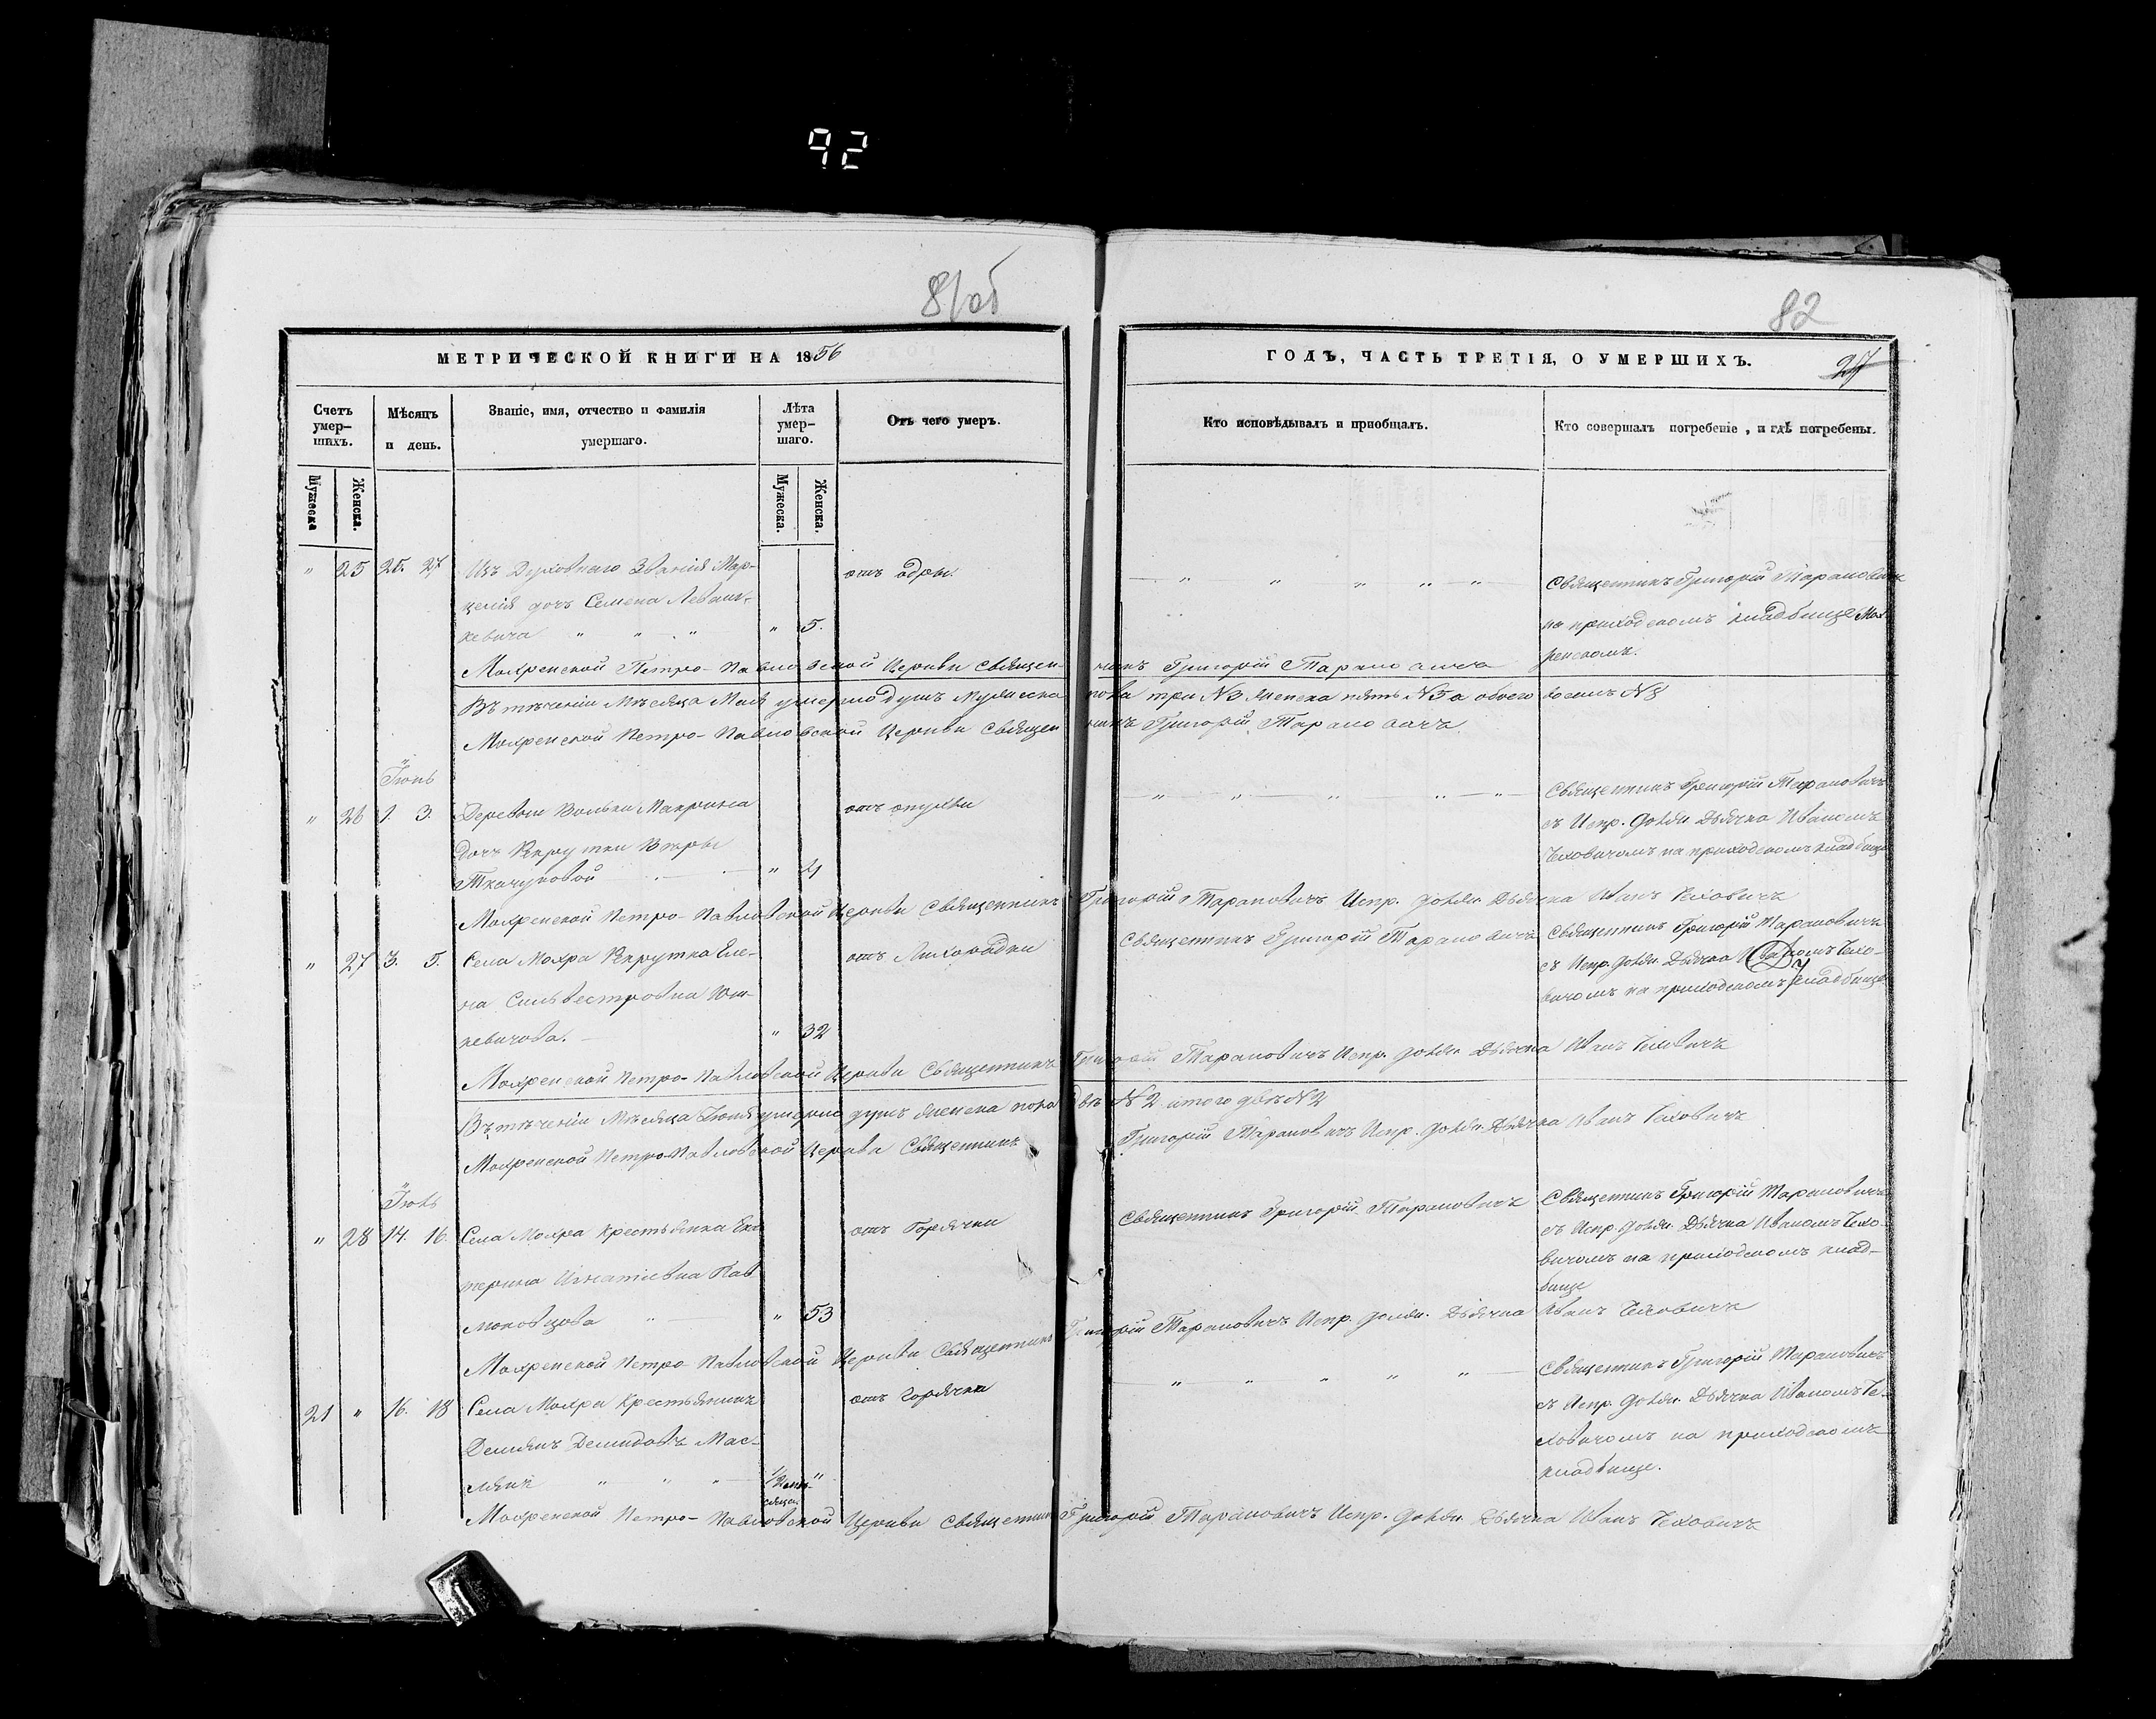 92
81об
82
МЕТРИЧЕСКОЙ КНИГИ НА 1856
ГОДЪ, ЧАСТЬ ТРЕТІЯ, О УМЕРШИХЪ.
27
Счетъ умер-шихъ.
Мѣсяцъ и день.
Званіе, имя, отчество и фамилія умершаго.
Лѣта умер-шаго.
Отъ чего умеръ.
Кто исповѣдывалъ и пріобщалъ.
Кто совершалъ погребеніе, и гдѣ погребены.
Мужеска
Женска.
Мужеска.
Женска.
" 25 25. 27
Изъ Духовнаго Званія Мар-
целія дочь Семена Леваш-
кевича " " "
" 5.
отъ одры.
Священникъ Григорій Тарановичъ
на приходскомъ кладбище Мох-
ренскомъ.
Мохренской Петро-Павловской Церкви Священникъ Григорій Тарановичъ
Въ теченіи Мѣсяца Мая умерло душъ мужеска пола три №3 женска пять №5 а обоего восемь №8
Мохренской Петро-Павловской Церкви Священникъ Григорій Тарановичъ.
Іюнь
" 26 1. 3.
Деревни Вольки Макрина
Дочь Рекрутки
Ткачуковой
" 4
отъ опухли
Священникъ Григорій Тарановичъ
съ Испр. Долж. Дьячка Иваномъ
Чеховичемъ на приходскомъ кладбище
Мохренской Петро-Павловской Церкви Священникъ Григорій Тарановичъ Испр. Долж. Дьячка Иванъ Чеховичъ
" 27 3. 5.
Села Мохра Рекрутка Еле-
на Сильвестровна Юш-
кевичова.
" 32
отъ Лихорадки
Священникъ Григорій Тарановичъ
Священникъ Григорій Тарановичъ
съ Испр. Долж. Дьячка Иваномъ Чехо-
вичомъ на приходскомъ кладбище
Мохренской Петро-Павловской Церкви Священникъ Григорій Тарановичъ Испр. Долж. Дьячка Иванъ Чеховичъ
Въ теченіи Мѣсяца Іюня умерло душъ женска пола двѣ №2 итого двѣ №2
Мохренской Петро-Павловской Церкви Священникъ Григорій Тарановичъ Испр. Долж. Дьячка Иванъ Чеховичъ
Іюль
" 28 14. 16.
Села Мохра Крестьянка Ека
терина Игнатіевна Пав
" 53
отъ Горячки
Священникъ Григорій Тарановичъ
Священникъ Григорій Тарановичъ
съ Испр. Долж. Дьячка Иваномъ Чехо-
вичомъ на приходскомъ клад-
бище
Мохренской Петро-Павловской Церкви Священникъ Григорій Тарановичъ Испр. Долж. Дьячка Иванъ Чеховичъ
21 " 16. 18
Села Мохра Крестьянинъ
Демьянъ Демидовъ Мас-
1/2 "
отъ Горячки
Священникъ Григорій Тарановичъ
съ Испр. Долж. Дьячка Иваномъ Че-
ховичомъ на приходскомъ
кладбище.
Мохренской Петро-Павловской Церкви Священникъ Григорій Тарановичъ Испр. Долж. Дьячка Иванъ Чеховичъ